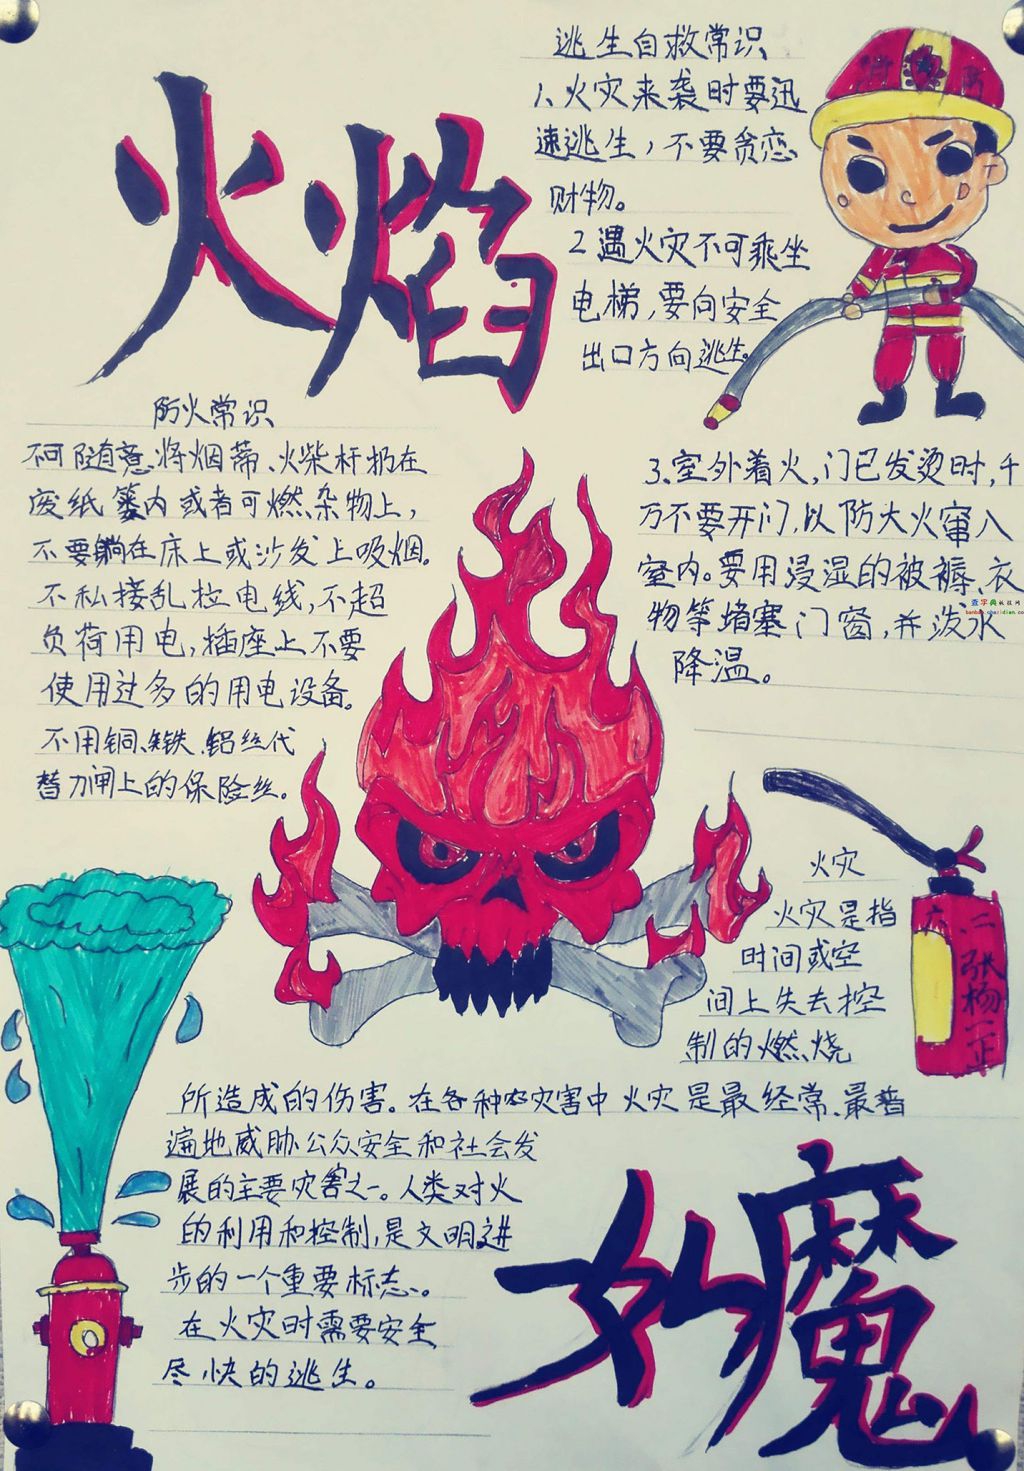 火焰
逃生自救常识
1、火灾来袭时要迅
速逃生，不要贪恋
财物。
2遇火灾不可乘坐
电梯，要向安全
出口方向逃生。
消防
防火常识
不可随意将烟蒂、火柴杆扔在
废纸篓内或者可燃杂物上，
不要躺在床上或沙发上吸烟。
不私接乱拉电线，不超
负荷用电，插座上不要
使用过多的用电设备。
不用铜、铁、铝丝代
替刀闸上的保险丝。
3、室外着火，门已发烫时，千
万不要开门，以防大火窜入
室内。要用浸湿的被褥、衣
物等堵塞门窗，并泼水
降温。
查字典教校网
火灾
火灾是指
时间或空
间上失去控
制的燃烧
所造成的伤害。在各种灾害中火灾是最经常、最普
遍地威胁公众安全和社会发
展的主要灾害之一。人类对火
的利用和控制，是文明进
步的一个重要标志。
在火灾时需要安全
尽快的逃生。
六、二
张杨一正
魔